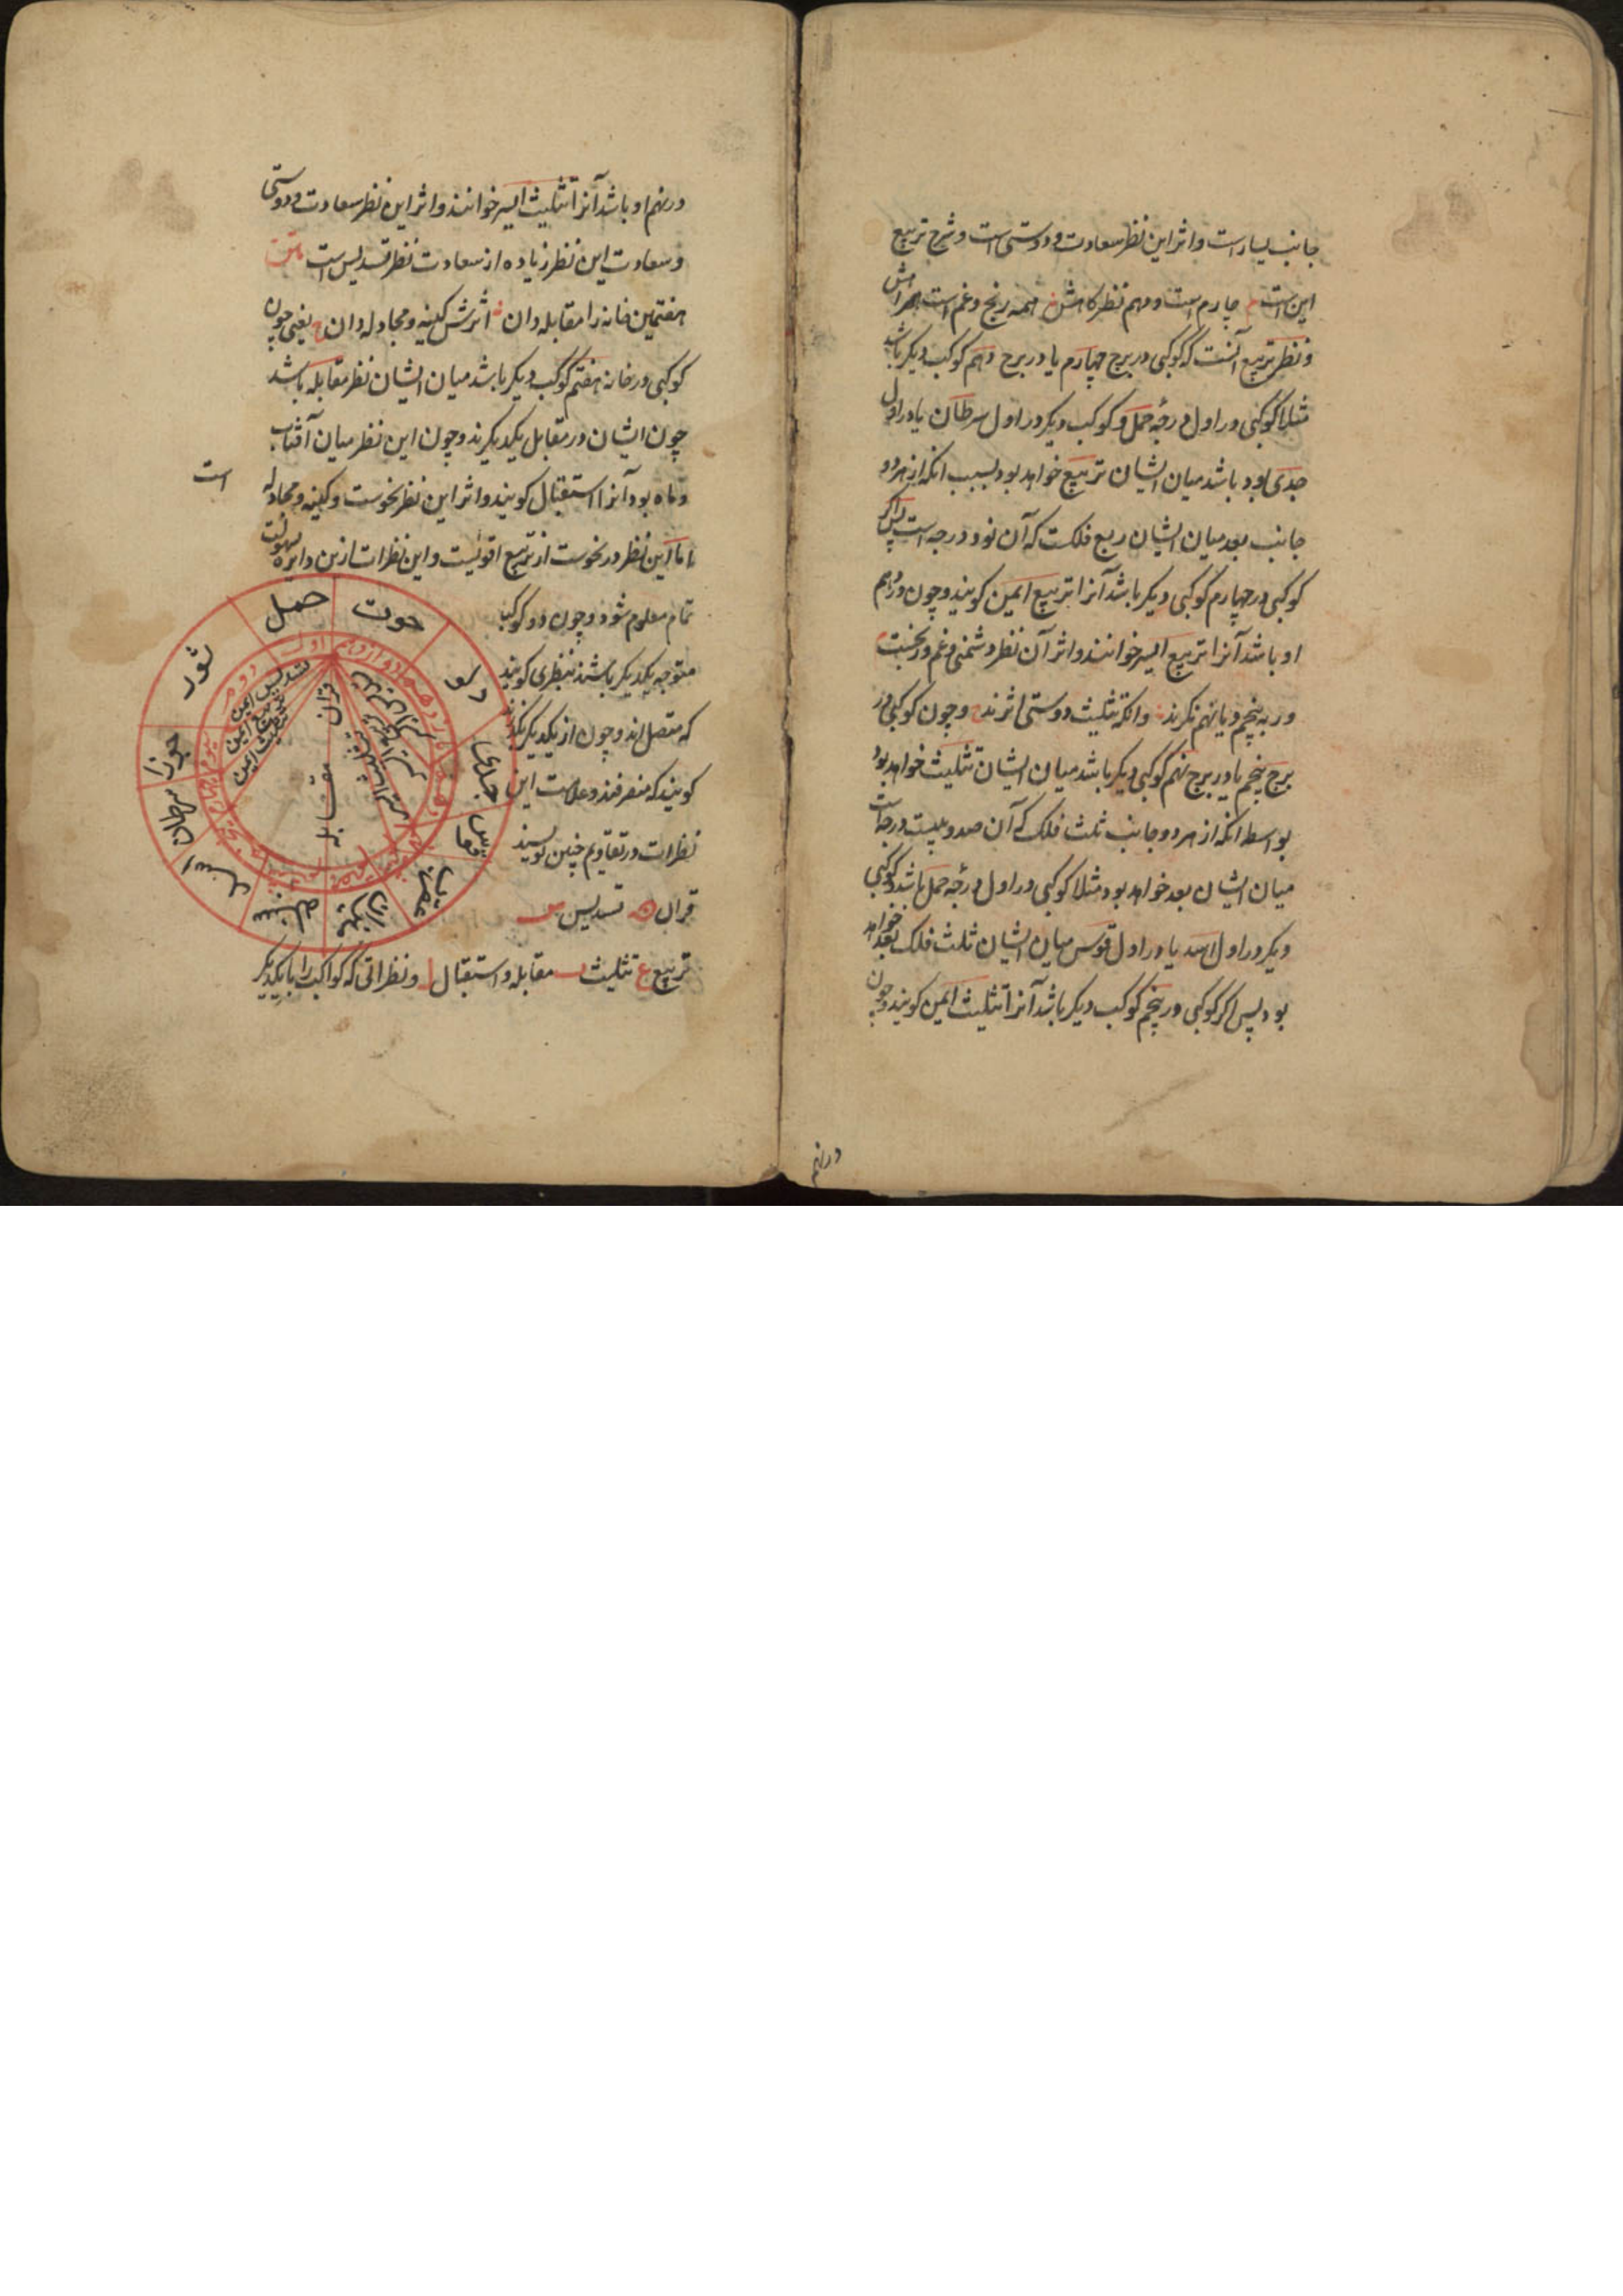 جانب یسار است و اثر این نظر سعادت و دوستی است و شرح تربیع
این است م چارم است و دهم نظر کاهش همه رنج و غم است
و نظر تربیع آنست که کوکبی در برج چهارم یا در برج دهم کوکب دیکر باشد
مثلا کوکبی در اول درجهٔ حمل و کوکب دیکر در اول سرطان یا در اول
جدی بود باشد میان ایشان تربیع خواهد بود بسبب انکه از هر دو
جانب بعد میان ایشان ربع فلکست که آن نود درجه است پس اکر
کوکبی در چهارم کوکبی دیکر باشد آنرا تربیع ایمن کویند و چون در دهم
او باشد آنرا تربیع ایسر خوانند و اثر آن نظر دشمنی و غم و رنجست م
ور به پنجم و یا نهم نکرند وانکه تثلیث دوستی اثرند ح و چون کوکبی در
برج پنجم یا در برج نهم کوکبی دیکر باشد میان ایشان تثلیث خواهد بود
بواسطه انکه از هر دو جانب ثلث فلک که آن صد و بیست درجه است
میان ایشان بعد خواهد بود مثلا کوکبی در اول درجهٔ حمل باشد و کوکبی
دیکر در اول اسد یا در اول قوس میان ایشان ثلث فلک بعد خواهد
بود پس اکر کوکبی در پنجم کوکب دیکر باشد آنرا تثلیث ایمن کویند و چون
در نهم
در نهم او باشد آنرا تثلیث ایسر خوانند و اثر این نظر سعادت و دوستی
و سعادت این نظر زیاده از سعادت نظر تسدیس است متن
هفتمین خانه را مقابله دان اثرش کینه و مجادله دان ح یعنی چون
کوکبی در خانه هفتم کوکب دیکر باشد میان ایشان نظر مقابله باشد
چون ایشان در مقابل یکدیکرند و چون این نظر میان آفتاب
و ماه بود آنرا استقبال کویند و اثر این نظر نحوست و کینه و مجادله
است
اما این نظر در نحوست از تربیع اقویست و این نظرات ازین دایره بسهولت
تمام معلوم شود و چون دو کوکب
متوجه یکدیکر باشند بنظری کویند
که متصل اند و چون از یکدیکر بکذرند
کویند که منصرفند و علامت این
نظرات در تقاویم چنین نویسند
قران ن تسدیس س
تربیع ع تثلیث ث مقابله و استقبال ل و نظراتی که کواکب را با یکدیکر
حمل
ثور
جوزا
سرطان
اسد
سنبله
میزان
عقرب
قوس
جدی
دلو
حوت
اول
دوم
دوازدهم
قران
مقابله
تسدیس ایمن
تربیع ایمن
تثلیث ایمن